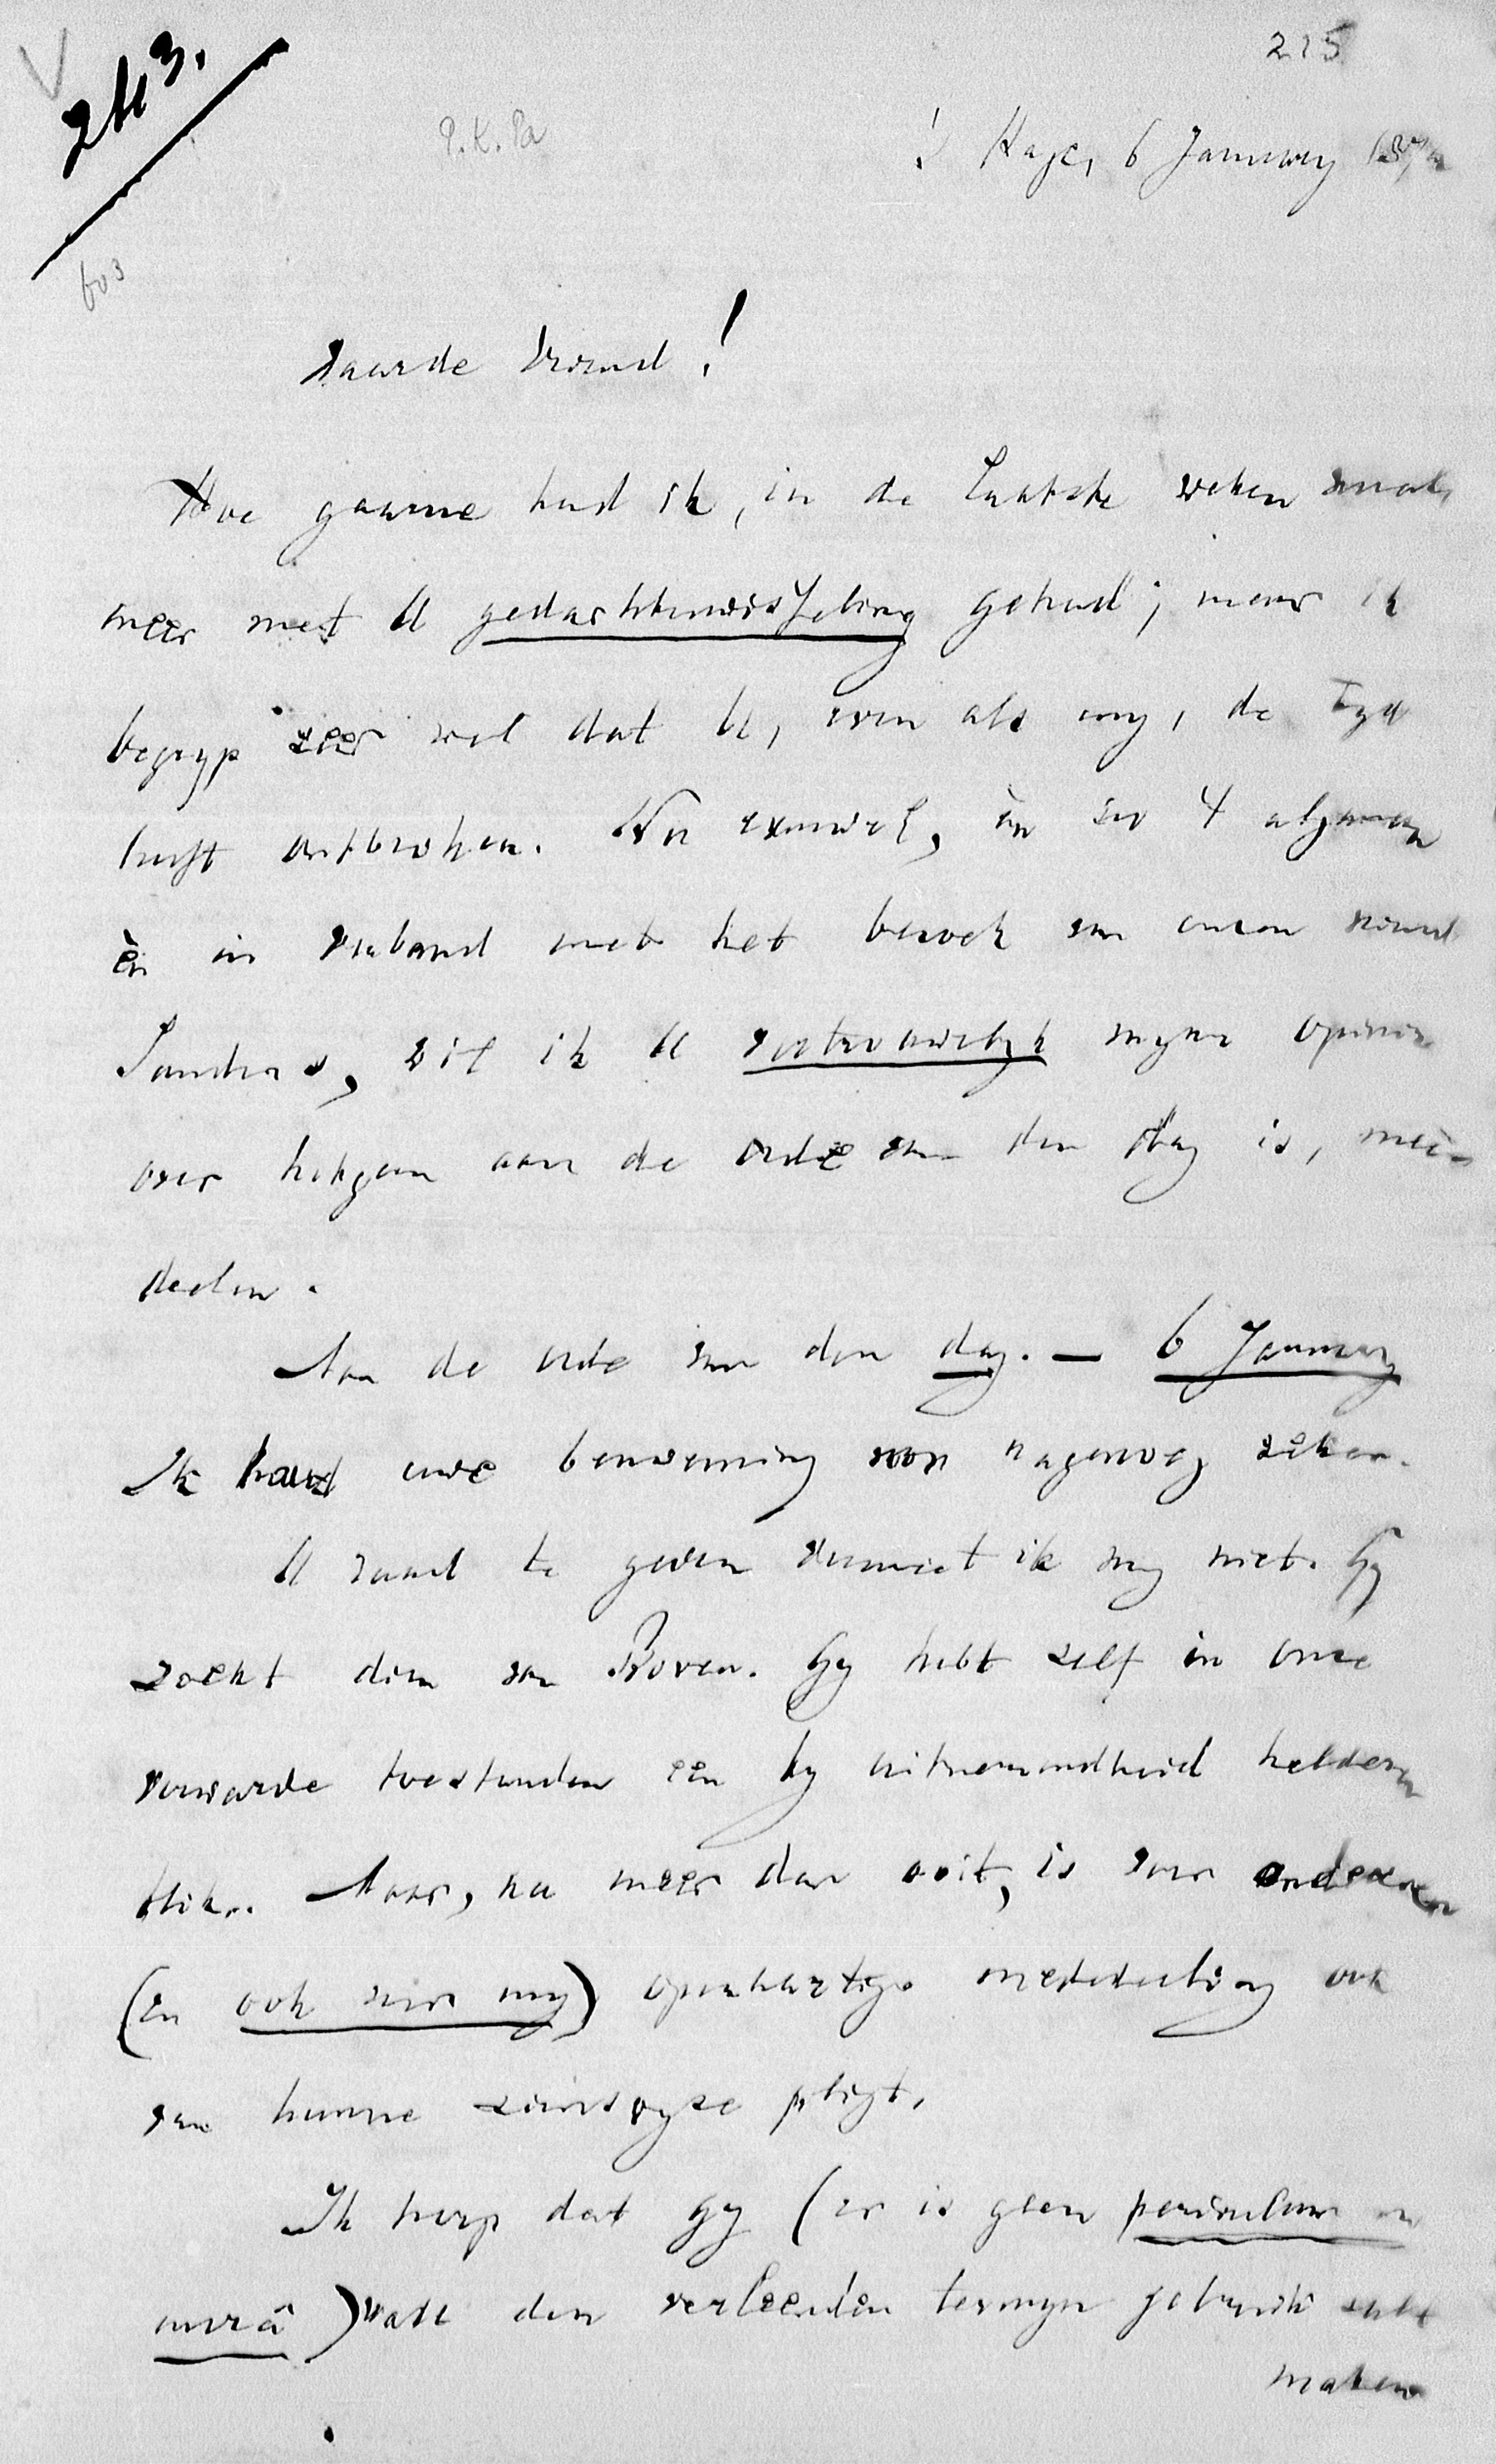 215
243.
603
's Hage, 6 January 187
Waarde Vriend!
Hoe gaarne had ik, in de laatste weken vooral,
meer met U gedachtenwisseling gehad; maar ik
begryp zeer wel dat U, even als my, de tyd
heeft ontbroken. Nu evenwel, èn in 't algemeen
èn in verband met het bezoek van onzen vriend
Sanders, wil ik U vertrouwelyk myne opinie
over hetgeen aan de orde van den dag is, mee-
deelen.
Aan de orde van den dag. — 6 January
Ik houd uwe benoeming voor nagenoeg zeker.
U raad te geven vermeet ik my niet. Gy
zoekt dien van Boven. Gy hebt zelf in onze
verwarde toestanden een by uitnemendheid helderen
blik. Maar, nu meer dan ooit, is voor anderen
(en ook voor my) openhartige mededeeling ook
van hunne zienswyze pligt.
Ik hoop dat Gy (er is geen periculum in
morâ) van den verleenden termyn gebruik zult
maken